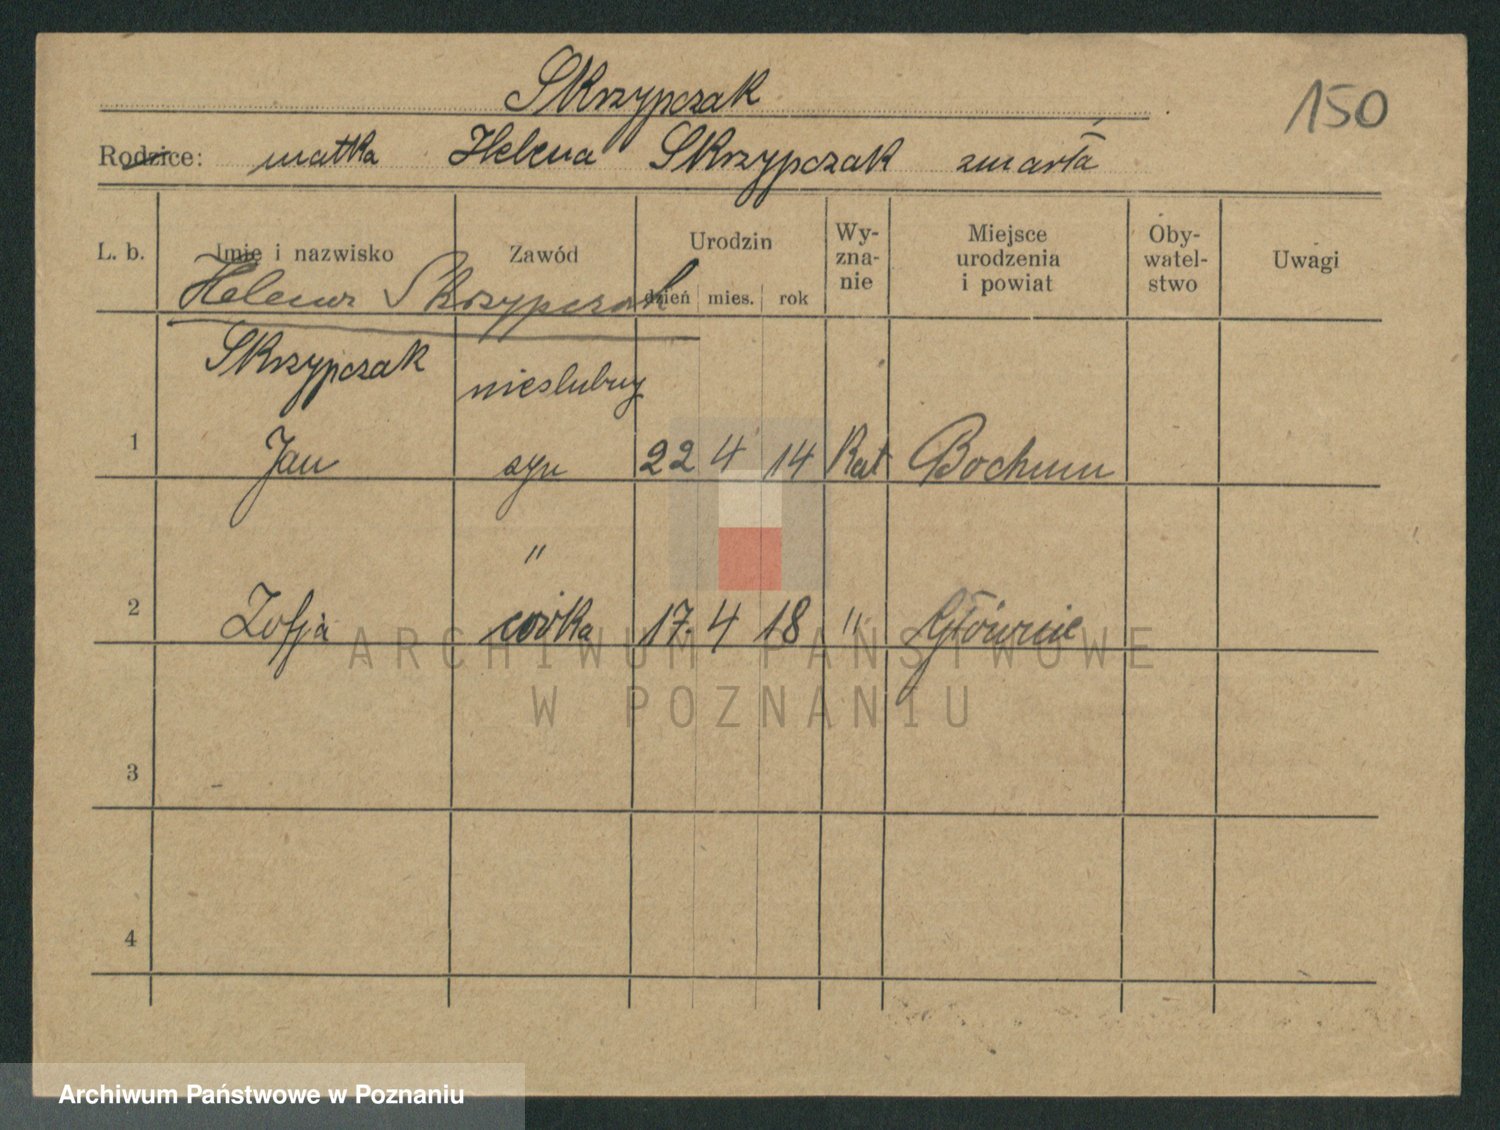 Skrzypczak
150
Rodzice: matka Helena Skrzypczak zmarła
L. b. Imię i nazwisko Zawód Urodzin dzień mies. rok Wy-zna-nie Miejsce urodzenia i powiat Oby-watel-stwo Uwagi
Helena Skrzypczak
Skrzypczak nieślubny
1 Jan syn 22 4 14 Kat Bochum
"
2 Zofja córka 17. 4 18 " Głównie
3
4
ARCHIWUM PAŃSTWOWE
W POZNANIU
Archiwum Państwowe w Poznaniu